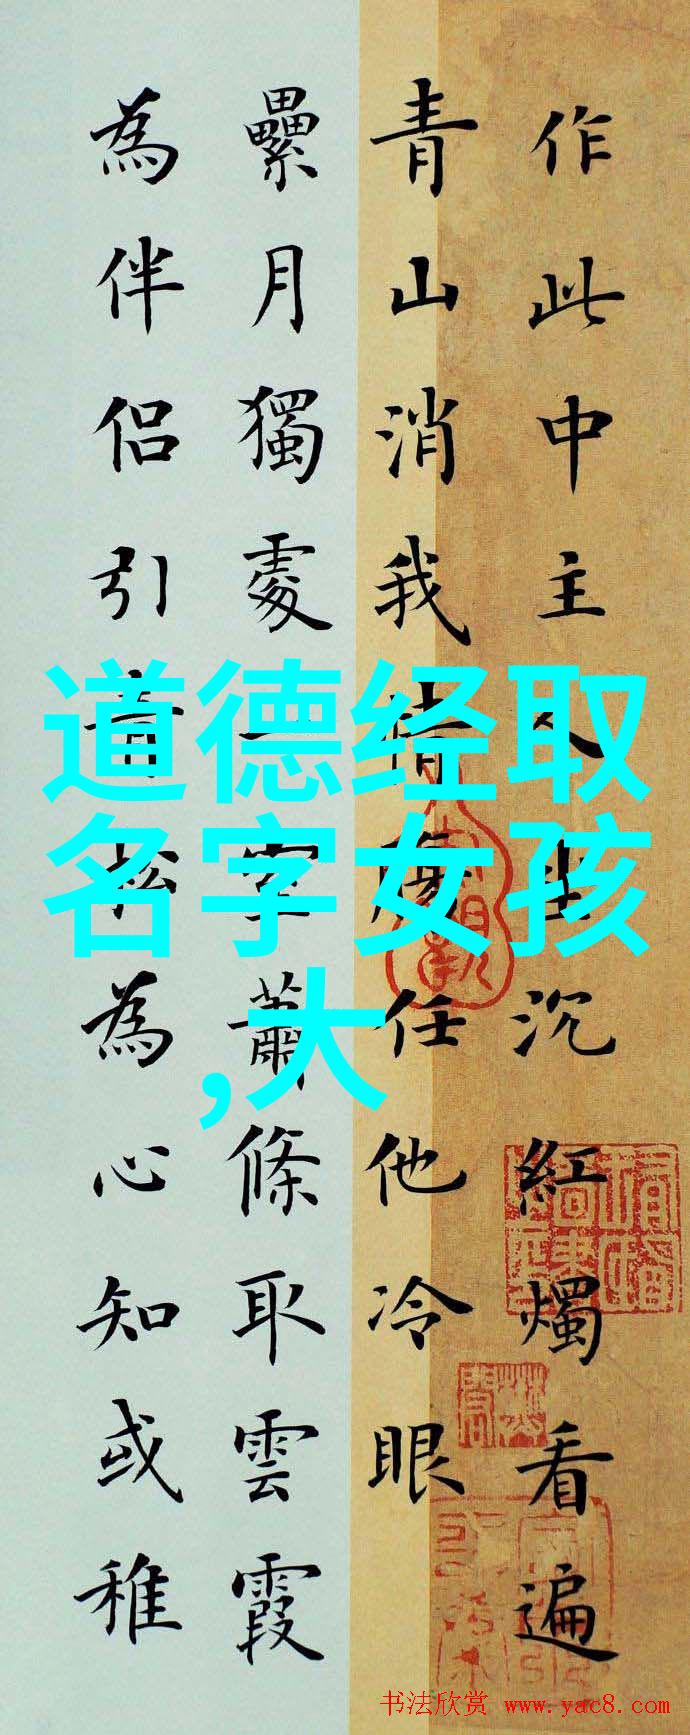 作此中主人坐沉紅燭看遍
青山消我情腸任他冷眼
纍月獨處一室蕭條取雲霞
為伴侶引青松為心知或稚
道德经取
名字女孩
,大
书法欣赏 www.yac8.com